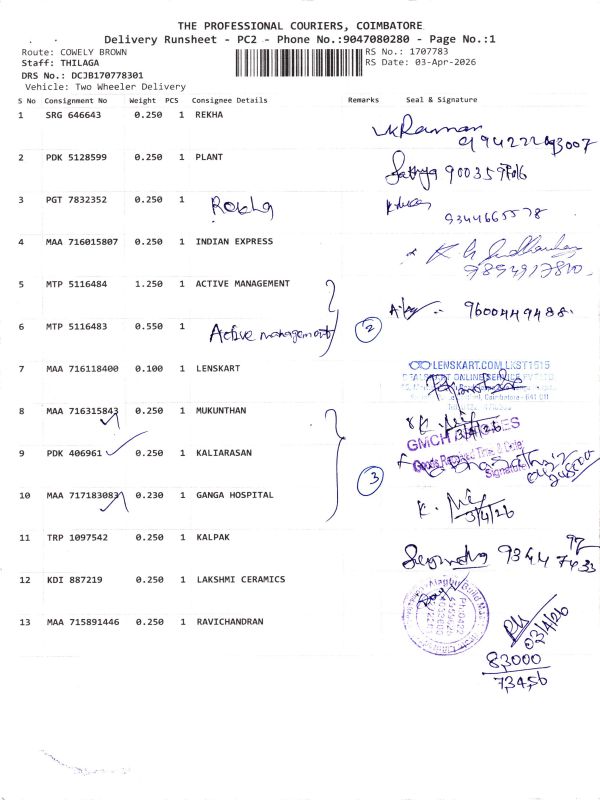 THE PROFESSIONAL COURIERS, COIMBATORE
Delivery Runsheet - PC2 - Phone No.:9047080280 - Page No.:1
Route: COWELY BROWN RS No.: 1707783
Staff: THILAGA RS Date: 03-Apr-2026
DRS No.: DCJB170778301
Vehicle: Two Wheeler Delivery
S No Consignment No Weight PCS Consignee Details Remarks Seal & Signature
1 SRG 646643 0.250 1 REKHA
2 PDK 5128599 0.250 1 PLANT
Sathya
3 PGT 7832352 0.250 1 Rekha
9344665578
4 MAA 716015807 0.250 1 INDIAN EXPRESS
5 MTP 5116484 1.250 1 ACTIVE MANAGEMENT
9600449488
6 MTP 5116483 0.550 1 Active management 2
7 MAA 716118400 0.100 1 LENSKART
LENSKART.COM LKST1515
8 MAA 716315843 0.250 1 MUKUNTHAN
3/4/26
GMCH
9 PDK 406961 0.250 1 KALIARASAN
Goods Received Time & Date:
Signature
3
10 MAA 717183083 0.230 1 GANGA HOSPITAL
3/4/26
11 TRP 1097542 0.250 1 KALPAK
12 KDI 887219 0.250 1 LAKSHMI CERAMICS
13 MAA 715891446 0.250 1 RAVICHANDRAN
03/4/26
83000
73456